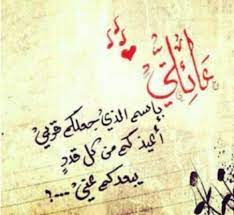 عائلتي
بإسم الذي جعلكم قوتي
أعيذكم من كل قدرٍ
يبعدكم عني ...؟